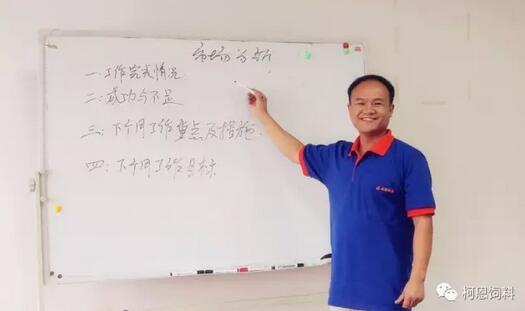 市场分析
一、工作完成情况
二、成功与不足
三、下个月工作重点及措施.
四、下个月工作目标
柯恩饲料